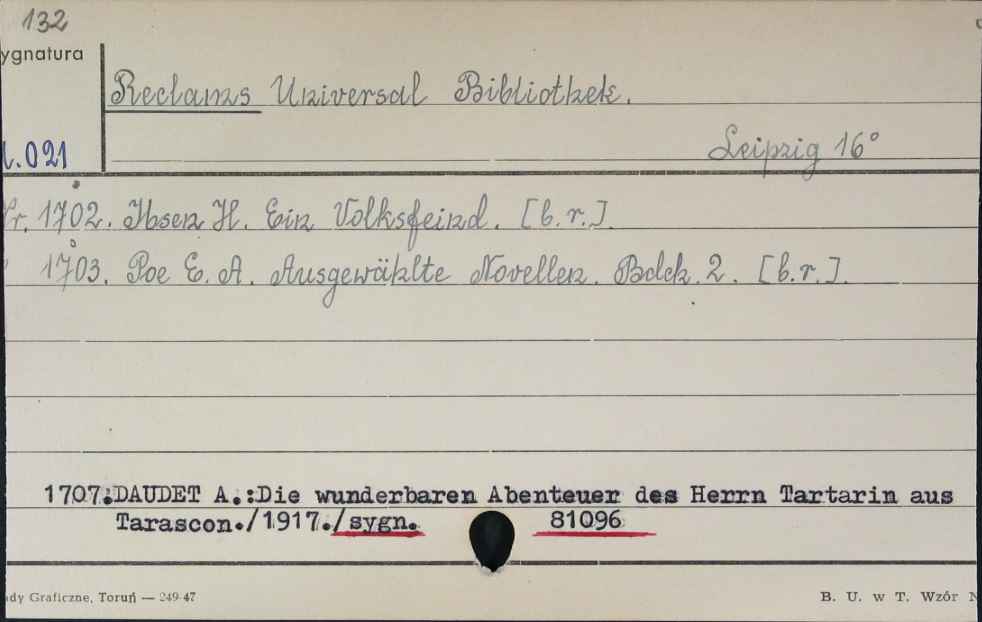 132
ygnatura
Reclams Universal Bibliothek.
.021
Leipzig 16°
Nr. 1702. Ibsen H. Ein Volksfeind. [b.r.].
" 1703. Poe E. A. Ausgewählte Novellen. Bdch. 2. [b.r.].
1707.DAUDET A.:Die wunderbaren Abenteuer des Herrn Tartarin aus
Tarascon./1917./sygn. 81096
dy Graficzne, Toruń — 249-47
B. U. w T. Wzór N